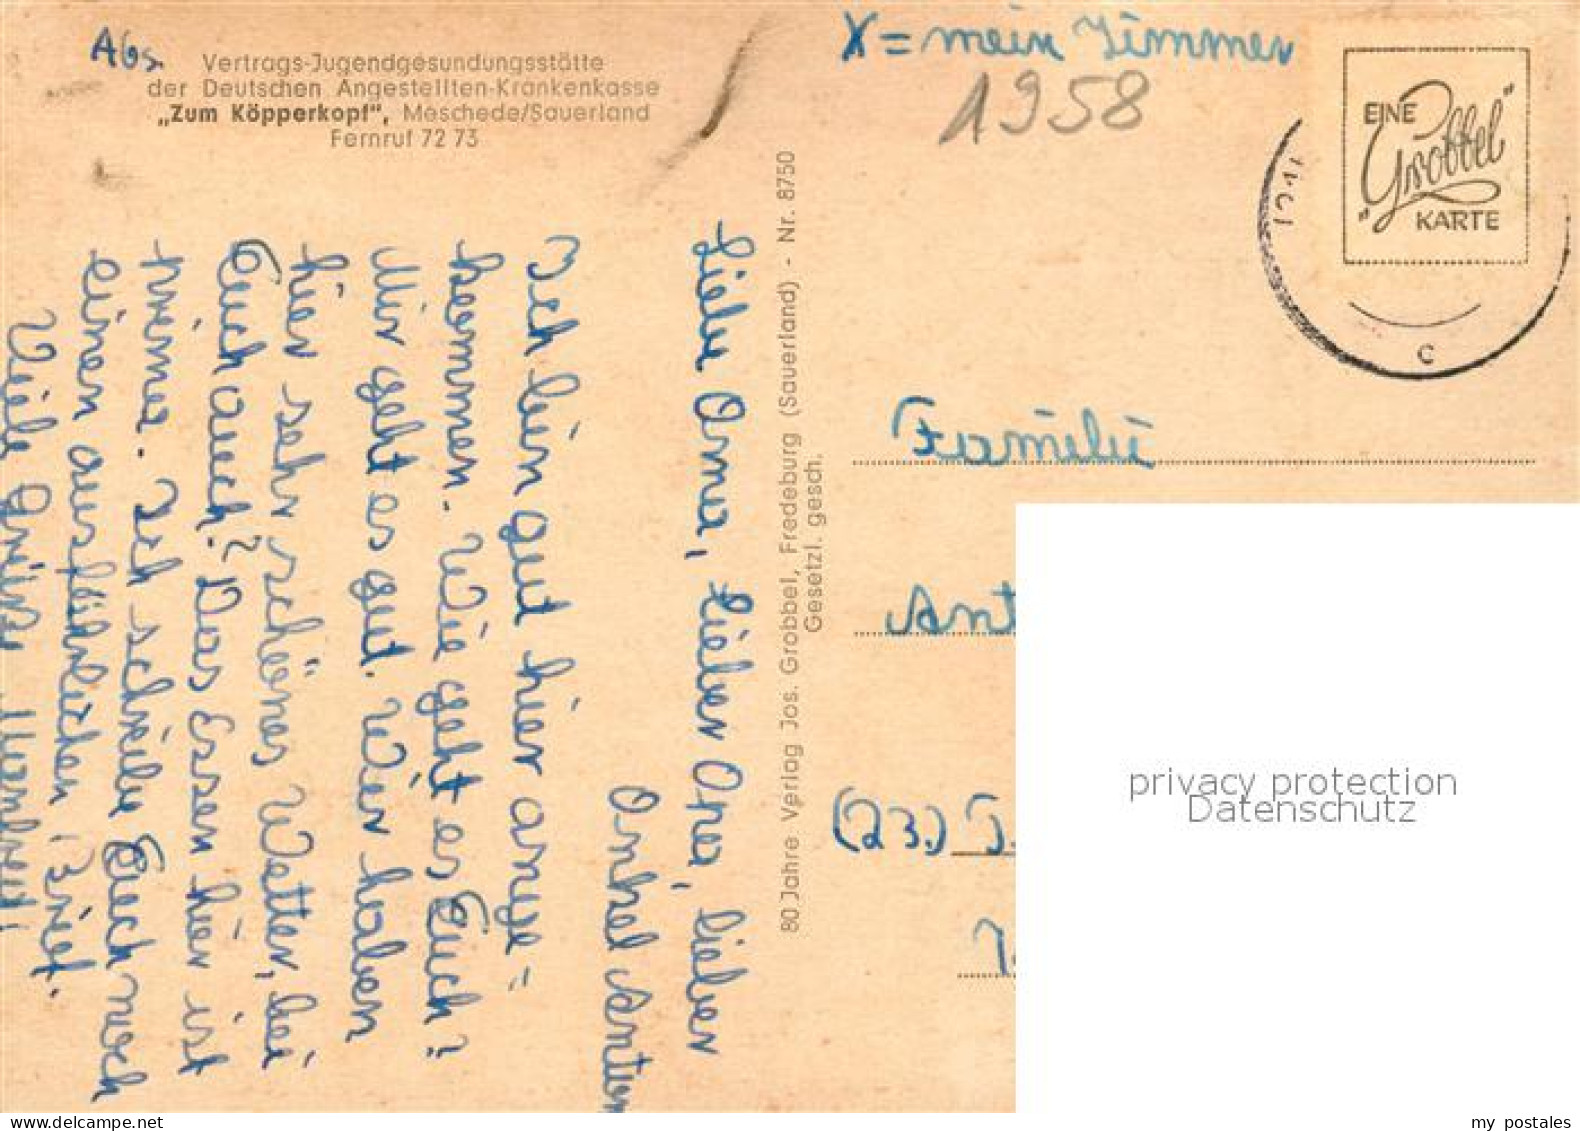 Abs.
Vertrags-Jugendgesundungsstätte
der Deutschen Angestellten-Krankenkasse
„Zum Köpperkopf“, Meschede/Sauerland
Fernruf 72 73
X = mein Zimmer
1958
EINE
„Grobbel“
KARTE
c
Liebe Oma, lieber Opa, lieber
Onkel Anton
Ich bin gut hier ange=
kommen. Wie geht es Euch?
Mir geht es gut. Wir haben
hier sehr schönes Wetter, bei
Euch auch? Das Essen hier ist
prima. Ich schreibe Euch noch
einen ausführlichen Brief.
Viele Grüße
80 Jahre Verlag Jos. Grobbel, Fredeburg (Sauerland) - Nr. 8750
Gesetzl. gesch.
Familie
Ant
(23)
privacy protection
Datenschutz
my postales